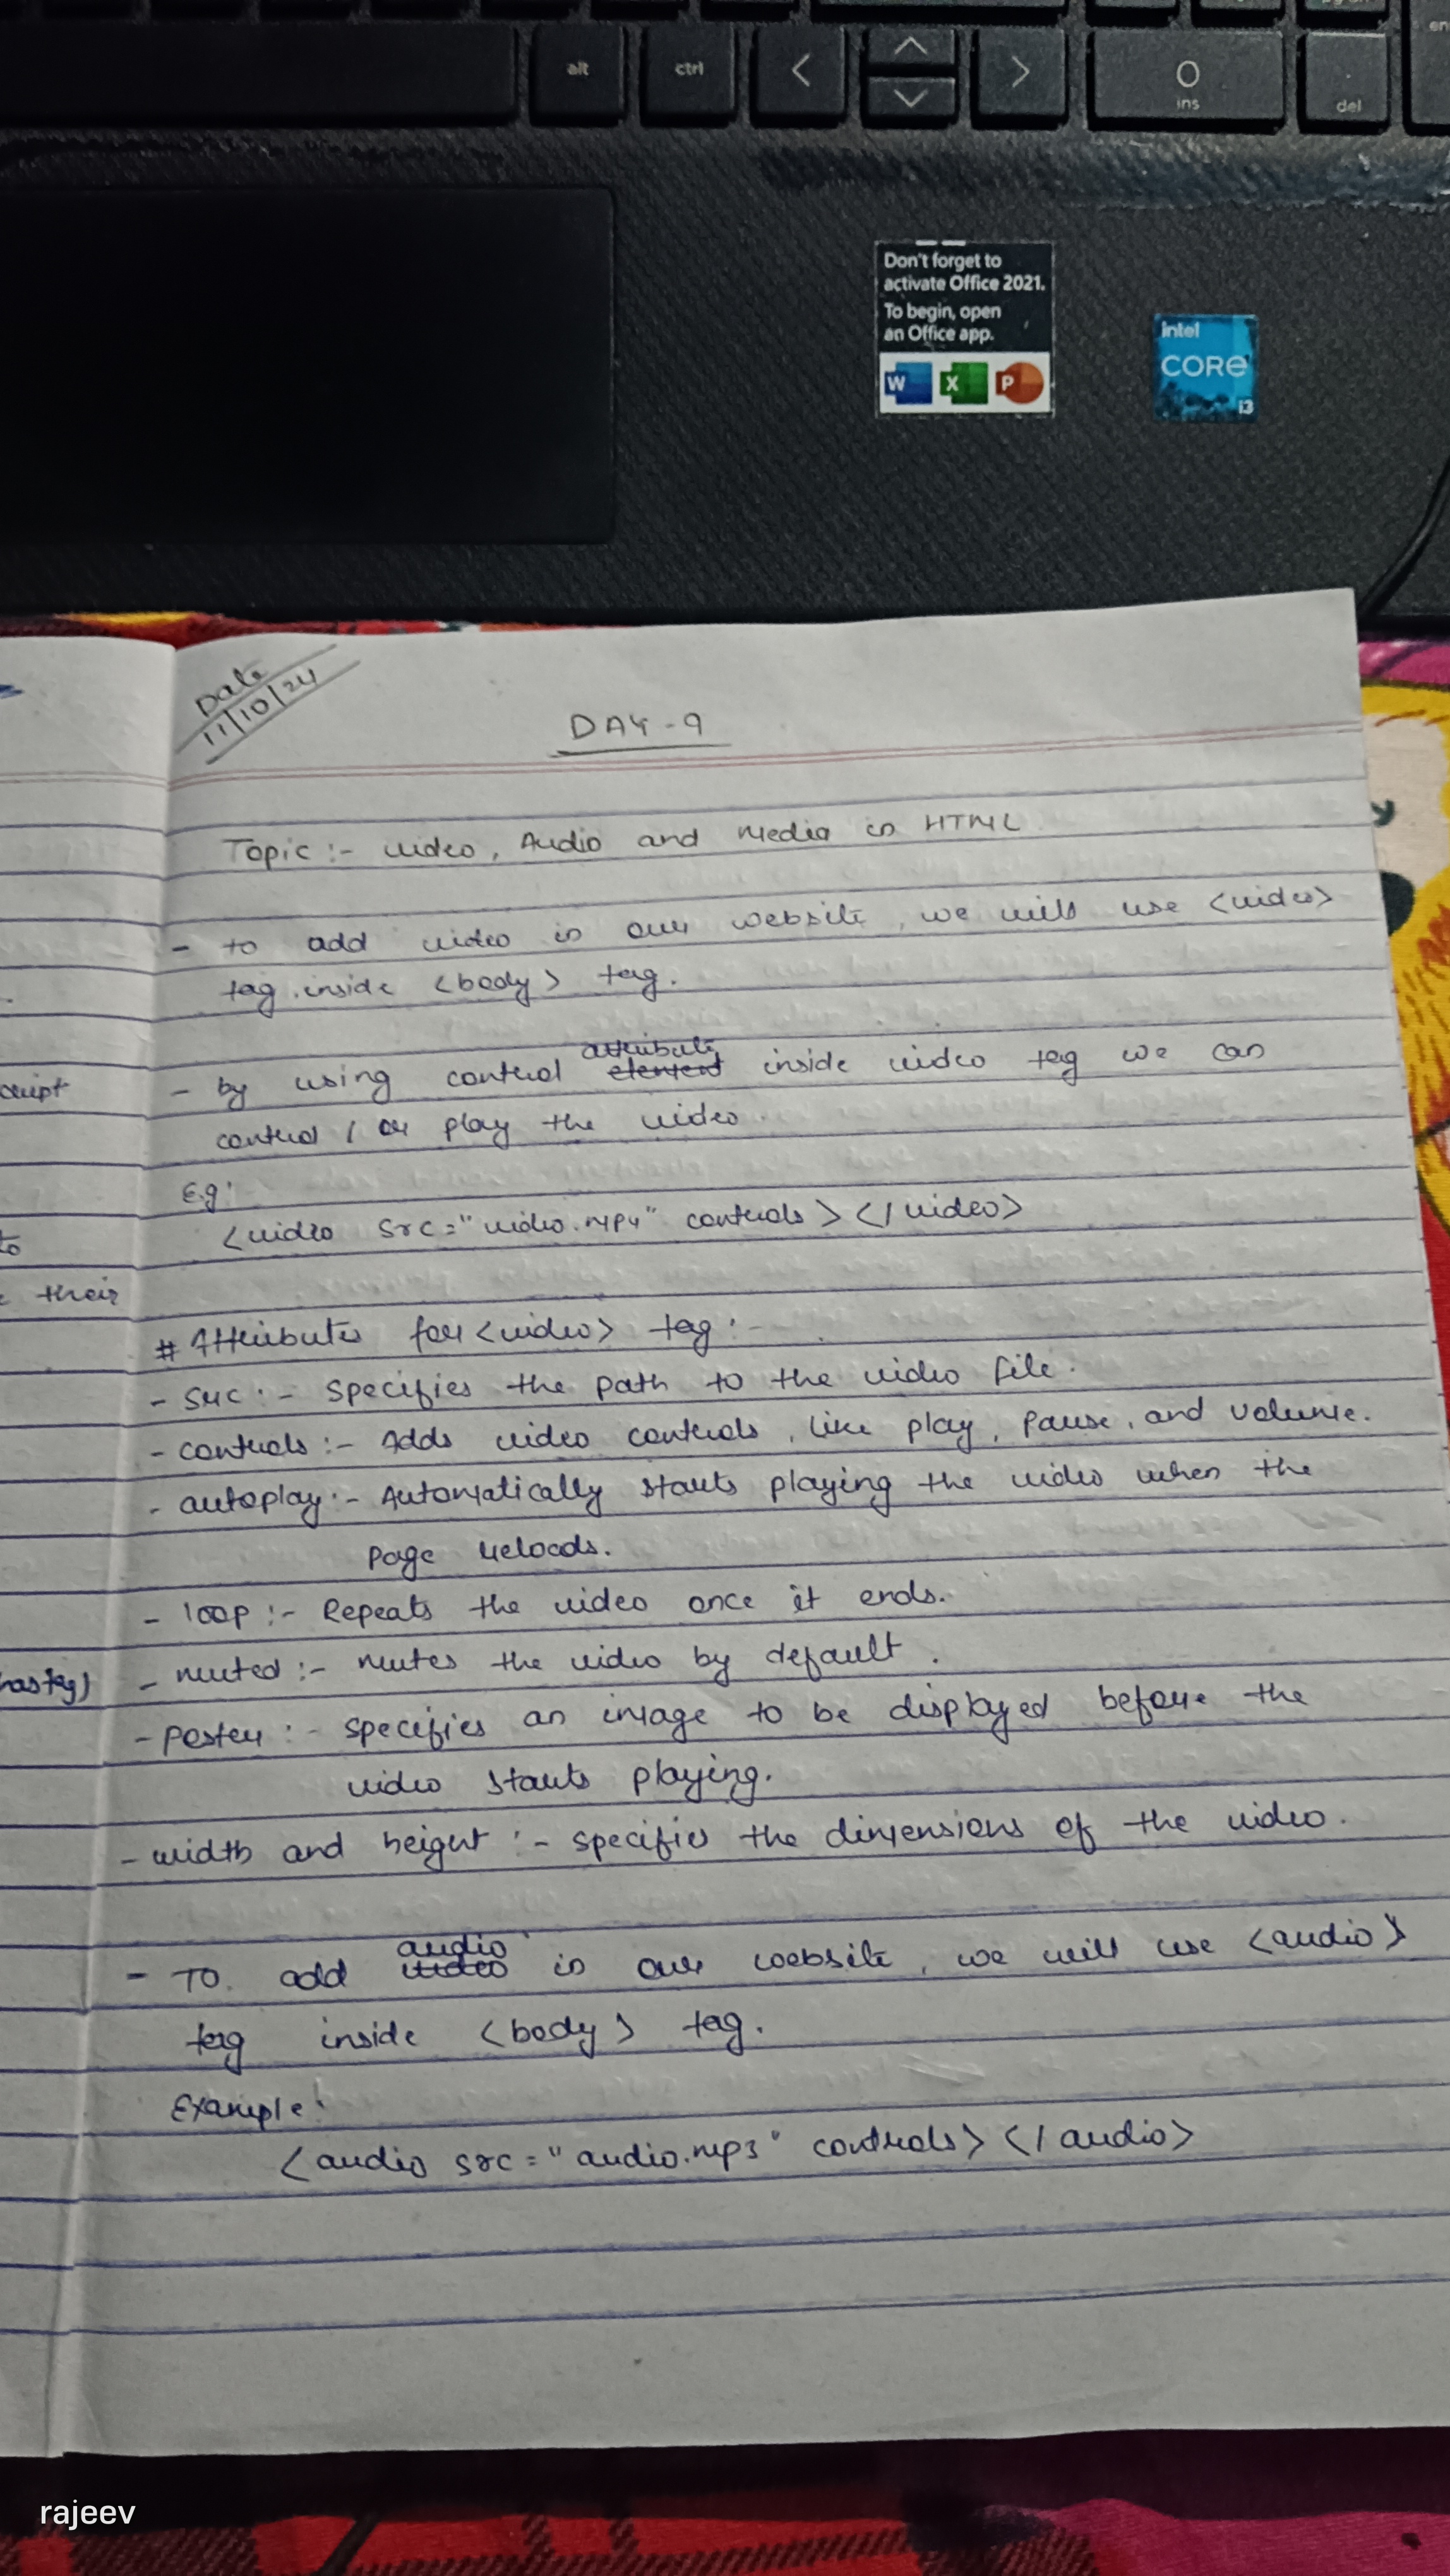 alt
ctrl
0
ins
.
del
Don't forget to
activate Office 2021.
To begin, open
an Office app.
W X P
intel
CORE
i3
Date
11/10/24
DAY-9
Topic :- video, Audio and Media in HTML
- to add video in our website, we will use <video>
tag inside <body> tag.
- by using control attribute element inside video tag we can
control / or play the video
E.g:
<video src="video.mp4" controls></video>
their
# Attributes for <video> tag:-
- src :- specifies the path to the video file.
- controls :- Adds video controls, like play, pause, and volume.
- autoplay :- Automatically starts playing the video when the
page reloads.
- loop :- Repeats the video once it ends.
- muted :- mutes the video by default.
- poster :- specifies an image to be displayed before the
video starts playing.
- width and height :- specifies the dimensions of the video.
- TO add audio video in our website, we will use <audio>
tag inside <body> tag.
Example:
<audio src="audio.mp3" controls></audio>
rajeev